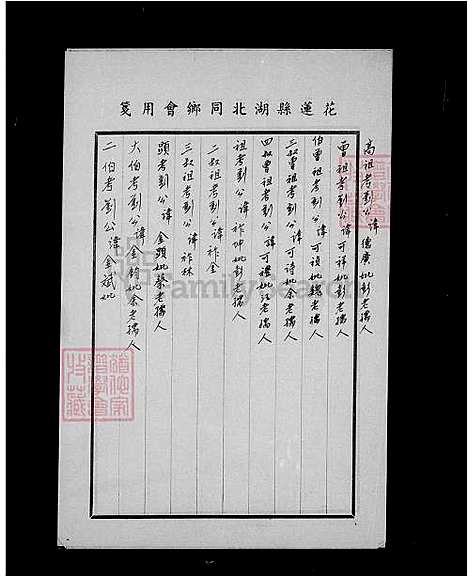 花蓮縣湖北同鄉會用箋
高祖考劉公諱德廣妣彭老孺人
曾祖考劉公諱可祥妣彭老孺人
伯曾祖考劉公諱可禎妣魏老孺人
三叔曾祖考劉公諱可詩妣余老孺人
四叔曾祖考劉公諱可禮妣江老孺人
祖考劉公諱祚坤妣彭老孺人
二叔祖考劉公諱祚金
三叔祖考劉公諱祚林
顯考劉公諱金頭妣蔡老孺人
大伯考劉公諱金 妣余老孺人
二伯考劉公諱金斌妣